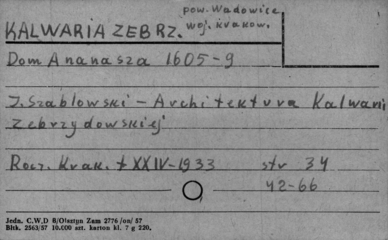 pow. Wadowice,
woj. krakow.
KALWARIA ZEBRZ.
Dom Ananasza 1605-9
J. Szablowski - Architektura Kalwarii
Zebrzydowskiej
Rocz. Krak. t XXIV-1933 str 34
42-66
Jedn. C.W.D 8/Olsztyn Zam 2776/on/57
Bltk. 2563/57 10.000 szt. karton kl. 7 g 220.